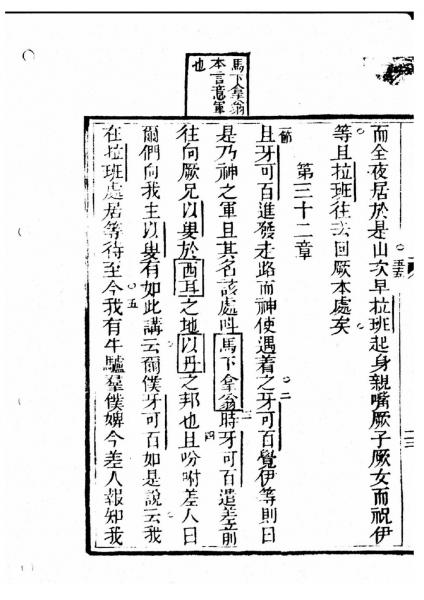 馬下拿翁
本言意軍
也
而全夜居於是山次早拉班起身親嘴厥子厥女而祝伊
五十五
等且拉班往去回厥本處矣
第三十二章
一節
且牙可百進發走路而神使遇着之牙可百覺伊等則曰
二
是乃神之軍且其名該處呌馬下拿翁時牙可百遣差前
三
往向厥兄以叟於西耳之地以丹之邦也且吩咐差人曰
四
爾們向我主以叟有如此講云爾僕牙可百如是說云我
在拉班處居等待至今我有牛驢羣僕婢今差人報知我
五